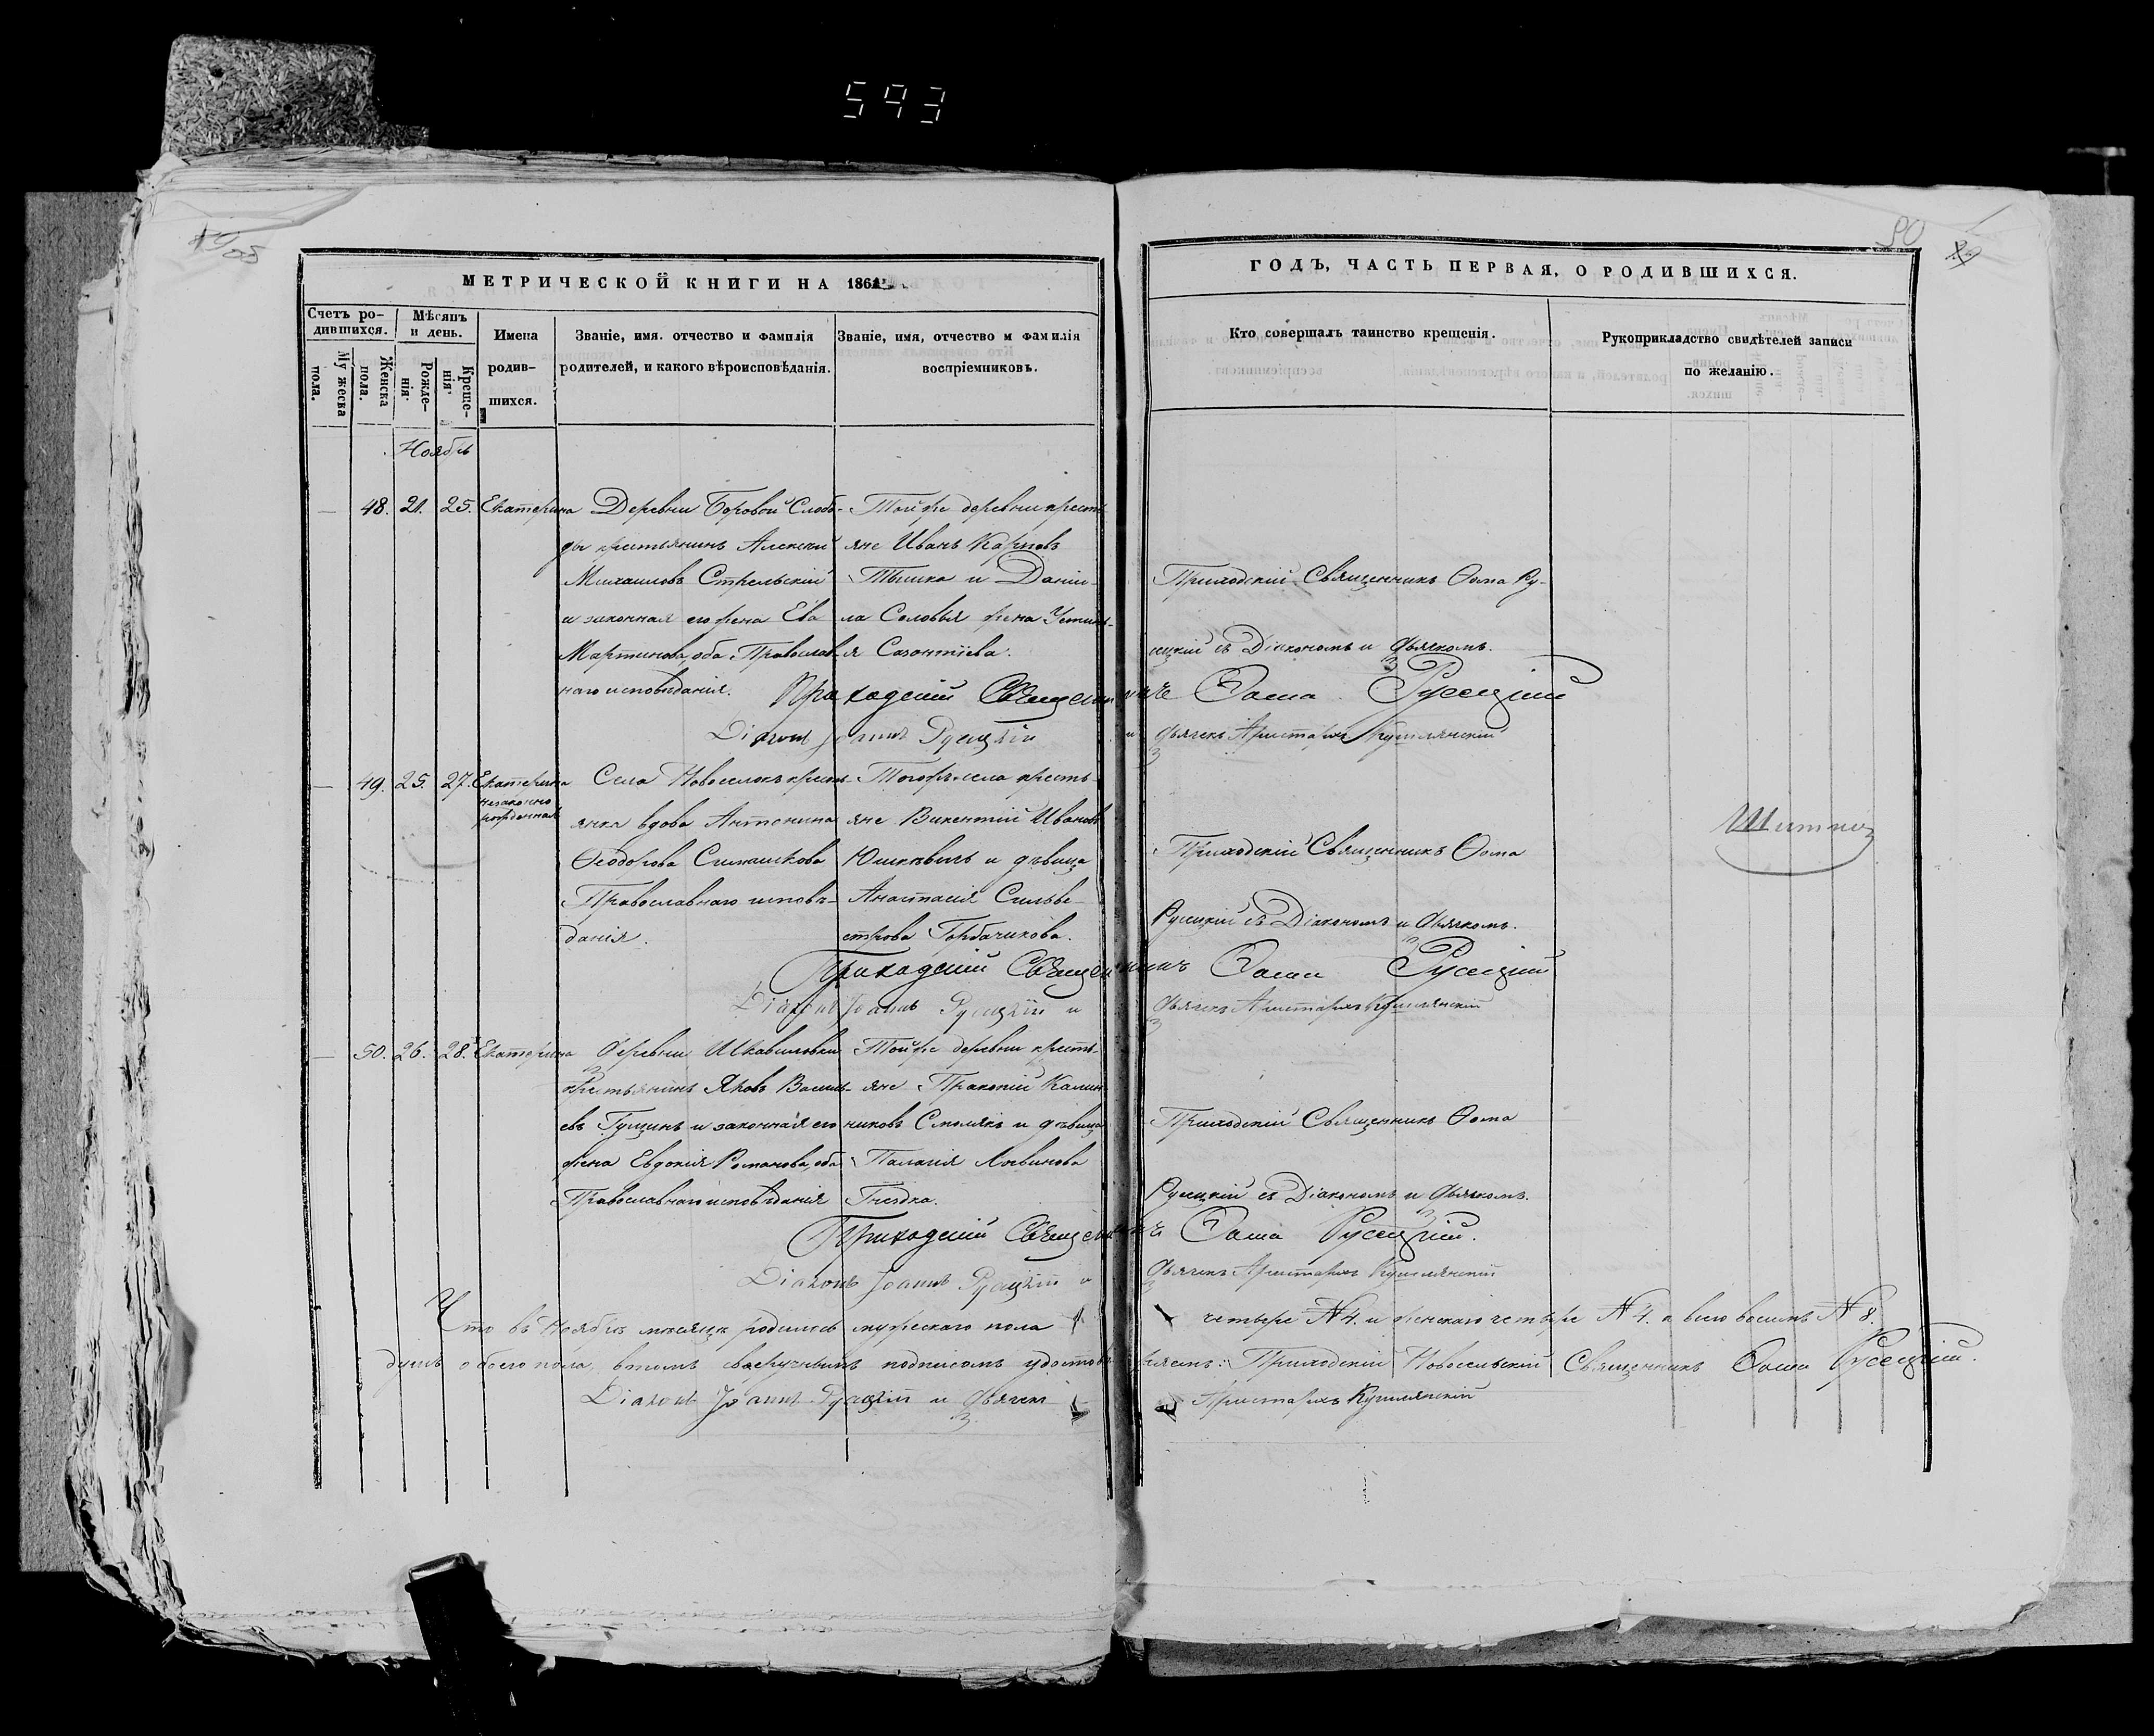 593
90
МЕТРИЧЕСКОЙ КНИГИ НА 1861
ГОДЪ, ЧАСТЬ ПЕРВАЯ, О РОДИВШИХСЯ.
Счетъ ро-
дившихся.
Мѣсяцъ
и день.
Имена
родив-
шихся.
Званіе, имя. отчество и фамилія
родителей, и какого вѣроисповѣданія.
Званіе, имя, отчество и фамилія
воспріемниковъ.
Кто совершалъ таинство крещенія.
Рукоприкладство свидѣтелей записи
по желанію.
Мужеска
пола.
Женска
пола.
Рожде-
нія.
Креще-
нія.
Ноябрь
48. 21. 25. Екатерина
Деревни Боровой Слобо-
ды крестьянинъ Алексѣй
Михаиловъ Стрельскій
и законная его жена Ева
Мартинова, оба Православ-
наго исповѣданія.
Той же деревни кресть-
яне Иванъ Карповъ
Тышка и Даніи-
ла Соловья жена Устинь-
я Созонтіева.
Приходскій Священникъ Ѳома Ру-
сецкій съ Діакономъ и Дьячкомъ.
Приходскій Священникъ Ѳома Русецкій
Діаконъ Іоаннъ Русецкій и Дьячекъ Аристархъ Кушлянскій
49. 25. 27. Екатерина
незаконно
рожденная
Села Новоселокъ кресть-
янка вдова Антонина
Ѳеодорова Симашкова
Православнаго исповѣ-
данія.
Тогожъ села кресть-
яне Викентій Ивановъ
Юшкевичъ и дѣвица
Анастасія Сильве-
строва Горбачикова.
Приходскій Священникъ Ѳома
Русецкій съ Діакономъ и Дьячкомъ.
Приходскій Священникъ Ѳома Русецкій
Діаконъ Іоаннъ Русецкій и Дьячекъ Аристархъ Кушлянскій
50. 26. 28. Екатерина
Деревни Шкавиловки
крестьянинъ Яковъ Василь-
евъ Гущинъ и законная его
жена Евдокія Романова, оба
Православнаго исповѣданія
Той же деревни кресть-
яне Пракопій Калин-
никовъ Смолякъ и дѣвица
Палагія Логвинова
Гнездка.
Приходскій Священникъ Ѳома
Русецкій съ Діакономъ и Дьячкомъ.
Приходскій Священникъ Ѳома Русецкій.
Діаконъ Іоаннъ Русецкій и Дьячекъ Аристархъ Кушлянскій
Что въ Ноябрѣ мѣсяцѣ родилось мужескаго пола четыре № 4. и женскаго четыре № 4. а всего восемь № 8.
душъ обоего пола, втомъ своеручнымъ подписомъ удостовѣряемъ: Приходскій Новосельскій Священникъ Ѳома Русецкій.
Діаконъ Іоаннъ Русецкій и Дьячекъ Аристархъ Кушлянскій